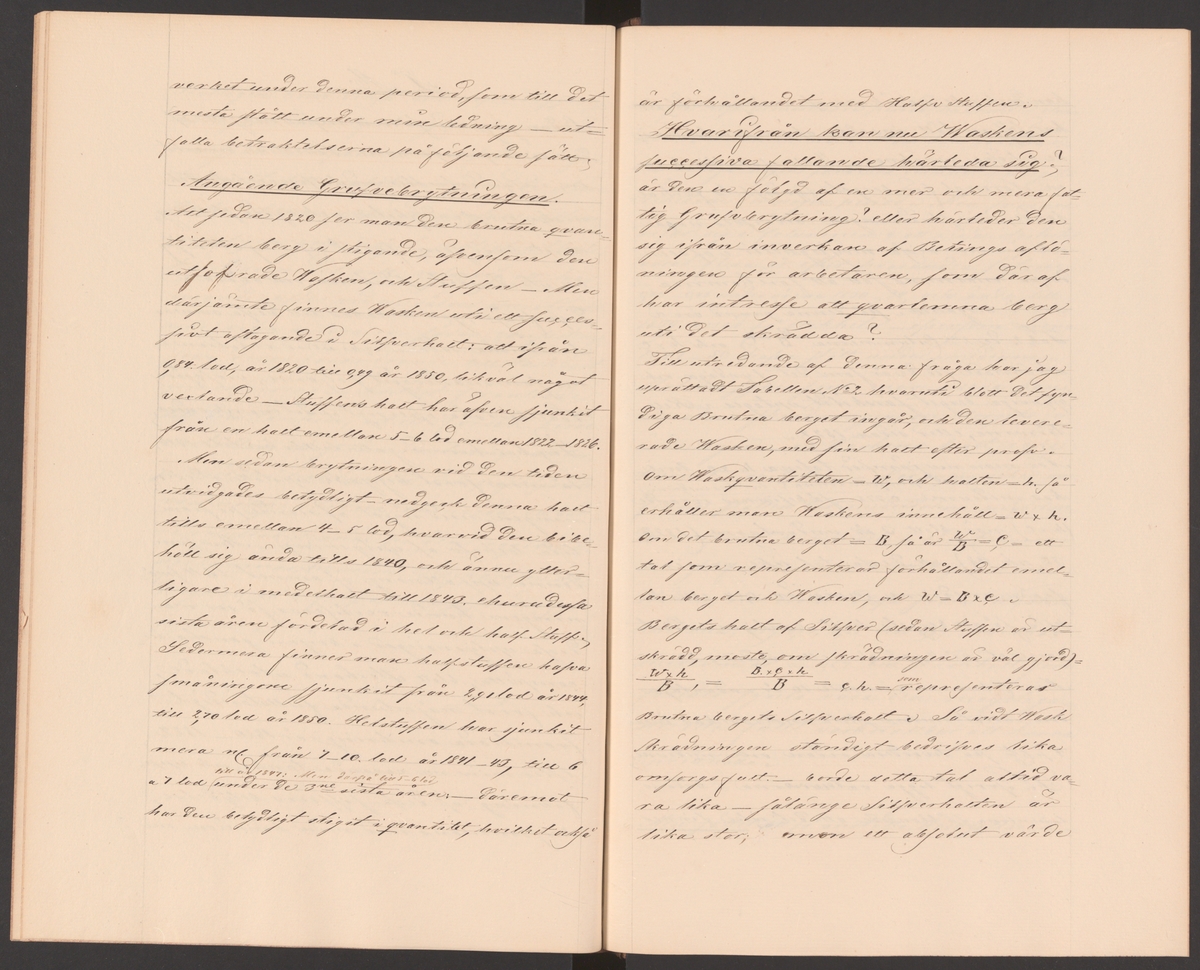 verket under denna period, som till det
mesta stått under min ledning — ut=
falla betraktelserna på följande sätt;
Angående Grufvebrytningen.
Alt sedan 1820 ser man den brutna qvan=
titeten berg i stigande, äfvensom den
utfofrade Wasken, och Stuffen — Men
därjämte finnes Wasken uti ett succes=
sivt aftagande i Silfverhalt: allt ifrån
0,84. lod, år 1820 till 0,49 år 1850, likväl något
vexlande — Stuffens halt har äfven sjunkit
från en halt emellan 5–6 lod emellan 1822–1826.
Men sedan brytningen vid den tiden
utvidgades betydligt — nedgick denna halt
tills emellan 4–5 lod, hvarvid den bibe=
höll sig ända tills 1840, och ännu ytter=
ligare i medelhalt till 1843. ehuru dessa
sista åren fördelad i hel och half Stuff,
Sedermera finner man halfstuffen hafva
småningom sjunkit från 2,91 lod år 1844,
till 2,70 lod år 1850. Helstuffen har sjunkit
mera nl från 7–10. lod år 1841–43, till 6
till år 1847: Men då på till 5-6 lod
a 7 lod under de 3ne sista åren; — däremot
har den betydligt stigit i qvantitet, hvilket också
är förhållandet med Half Stuffen.
Hvarifrån kan nu Waskens
successiva fallande härleda sig?,
är den en följd af en mer och mera fat=
tig Grufvbrytning? eller härleder den
sig ifrån inverkan af Betings aflö=
ningen för arbetaren, som däraf
har intresse att qvarlemna berg
uti det skrädda?
Till utredande af denna fråga har jag
upprättadt Tabellen No 2 hvaruti blott det fyn=
diga Brutna berget ingår, och den levere=
rade Wasken, med sin halt efter prof.
Om Waskqvantiteten = W, och halten = h. så
erhåller man Waskens innehåll = W x h.
Om det brutna berget = B. så är W/B = Q = ett
tal som representerar förhållandet emel=
lan berget och Wasken, och W = B x Q.
Bergets halt af Silfver (sedan Stuffen är ut=
skrädd, måste, om skrädningen är väl gjord)=
W x h/B, = B. x Q x h/B = Q. h. = som representeras
Brutna bergets Silfverhalt. Så vidt Wask
skrädningen ständigt bedrifves lika
omsorgsfult. — borde detta tal alltid va=
ra lika — sålänge Silfverhalten är
lika stor; men ett absolut värde